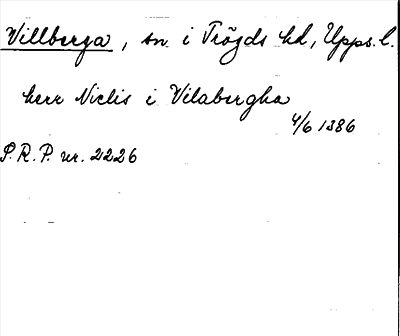 Villberga, sn i Trögds hd, Upps. l.
herr Niclis i Vilabergha
4/6 1386
S.R.P. nr. 2226